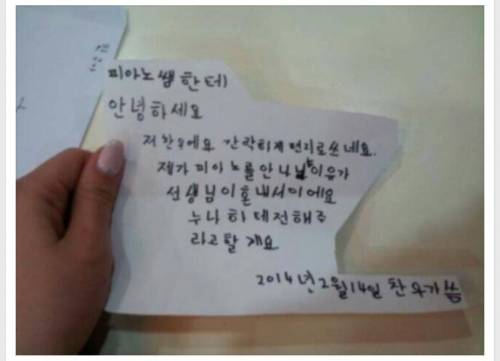 피아노쌤한테
안녕하세요
저 찬우에요 간략하게 편지로쓰네요.
제가 피아노를 안 나는이유가
선생님이혼내서이에요
누나 하테전해주
라고할 게요
2014년2월14일 찬우가씀